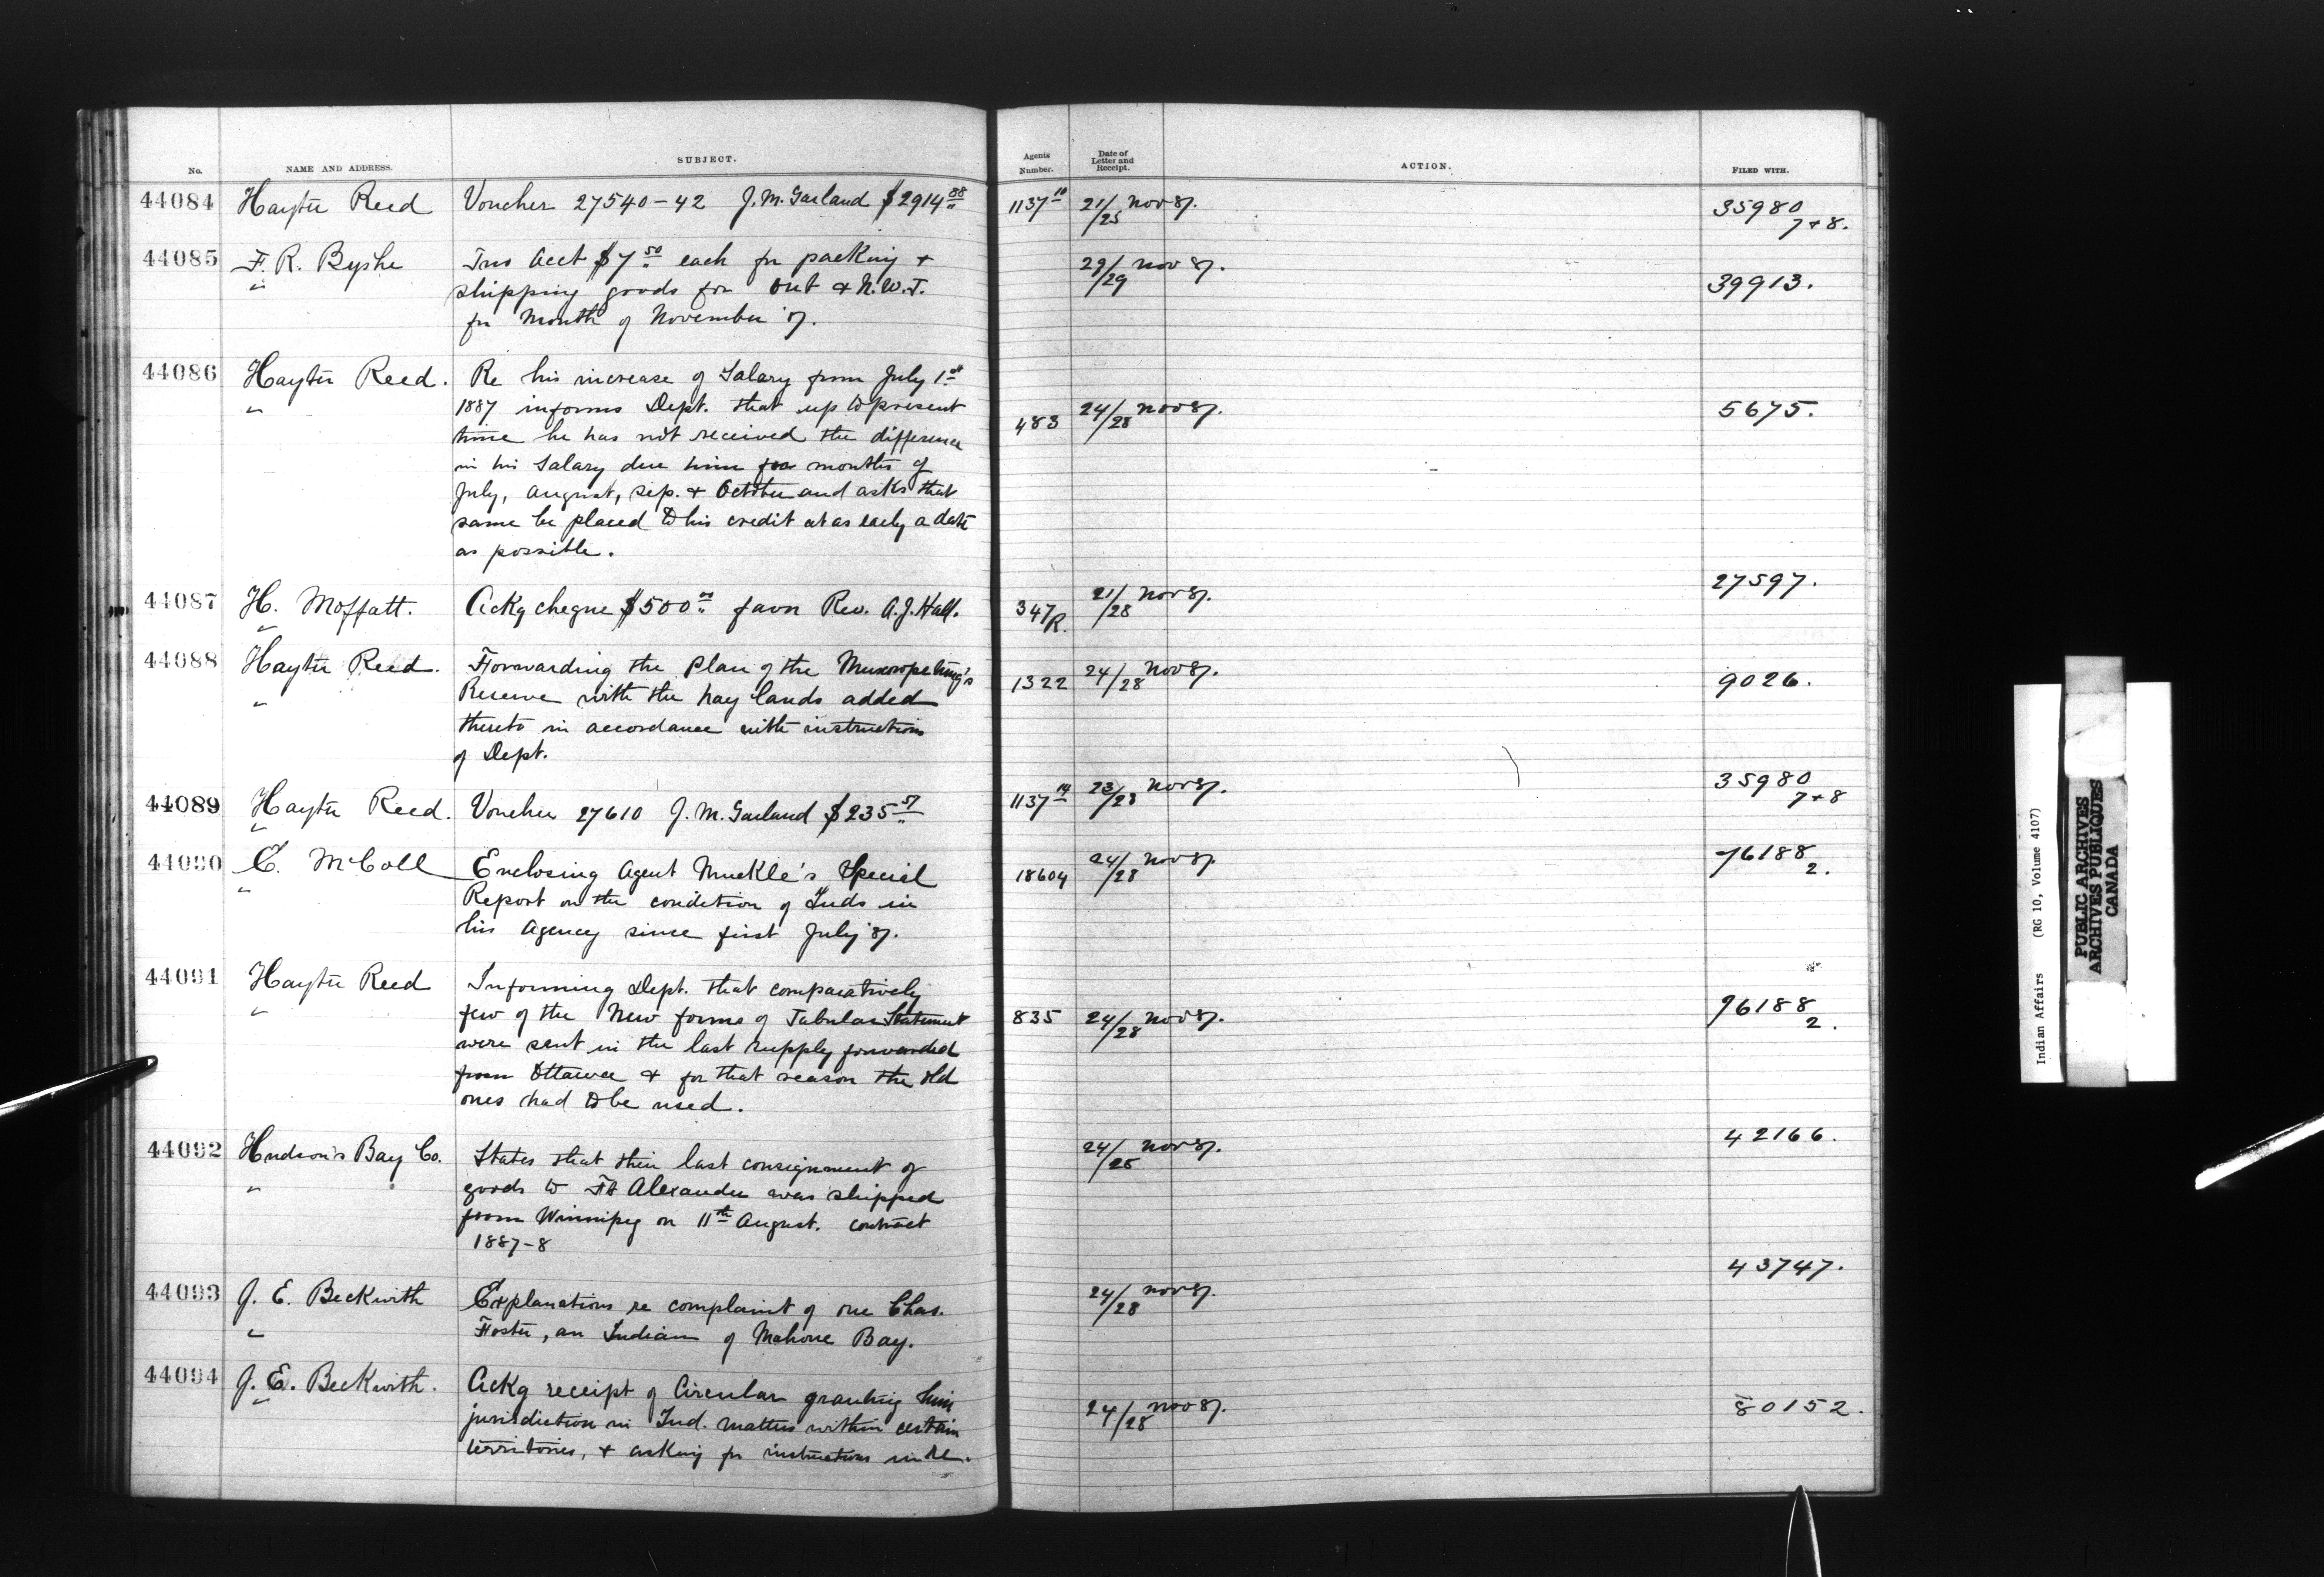 No. NAME AND ADDRESS. SUBJECT. Agents Number. Date of Letter and Receipt. ACTION. FILED WITH.
44084 Hayter Reed Voucher 27540-42 J. M. Garland $2914 88 1137 10 21/25 Nov 87. 35980 7+8.
44085 F. R. Byshe Two Acct $7 50 each for packing + 29/29 Nov 87. 39913.
" shipping goods for Ont & N.W.T.
for Month of November 87.
44086 Hayter Reed. Re his increase of Salary from July 1st
" 1887 informs Dept. that up to present 483 24/28 Nov 87. 5675.
time he has not received the difference
in his Salary due him for months of
July, August, Sep. + October and asks that
same be placed to his credit at as early a date
as possible.
44087 H. Moffatt. Ackg cheque $500 00 favor Rev. A. J. Hall. 347 R. 21/28 Nov 87. 27597.
"
44088 Hayter Reed. Forwarding the Plan of the Muscowpetung's 1322 24/28 Nov 87. 9026.
" Reserve with the hay lands added
thereto in accordance with instructions
of Dept.
44089 Hayter Reed. Voucher 27610 J. M. Garland $235 57 1137 14 23/28 Nov 87. 35980 7+8
"
44090 E. McColl Enclosing Agent Muckle's Special 18604 24/28 Nov 87. 76188 2.
" Report on the condition of Inds in
his Agency since first July 87.
44091 Hayter Reed Informing Dept. that comparatively
" few of the New forms of Tabular Statement 835 24/28 Nov 87. 76188 2.
were sent in the last supply forwarded
from Ottawa & for that reason the old
ones had to be used.
44092 Hudson's Bay Co. States that their last consignment of 24/25 Nov 87. 42166.
" goods to Ft Alexander was shipped
from Winnipeg on 11th August. contract
1887-8
44093 J. E. Beckwith Explanations re complaint of one Chas. 24/28 Nov 87. 43747.
" Foster, an Indian of Mahone Bay.
44094 J. E. Beckwith. Ackg receipt of Circular granting him
" jurisdiction in Ind. matters within certain 24/28 Nov 87. 80152.
territories, + asking for instructions in re.
Indian Affairs (RG 10, Volume 4107)
PUBLIC ARCHIVES
ARCHIVES PUBLIQUES
CANADA